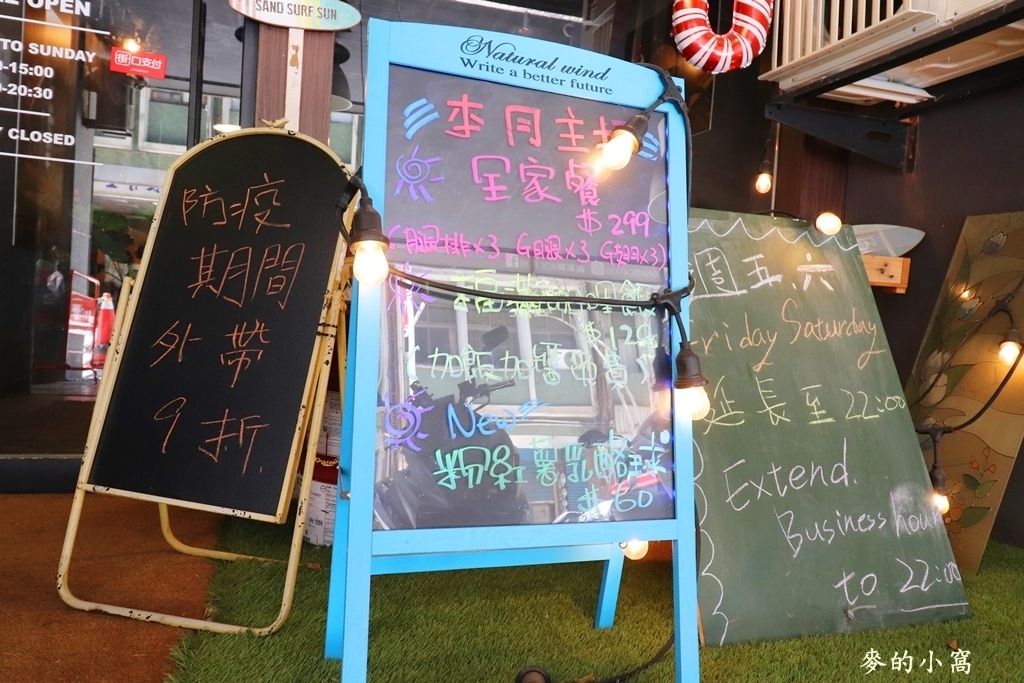 OPEN
TO SUNDAY
-15:00
-20:30
CLOSED
街口支付
SAND SURF SUN
防疫
期間
外帶
9折
Natural wind
Write a better future
本月主
全家餐
$299
(腿排x3 G腿x3 G翅x3)
$12
(加飯加醬免費)
New
粉紅薯乳酪球
$60
週五.六
Friday Saturday
延長至22:00
Extend.
Business hour
to 22:00
麥的小窩